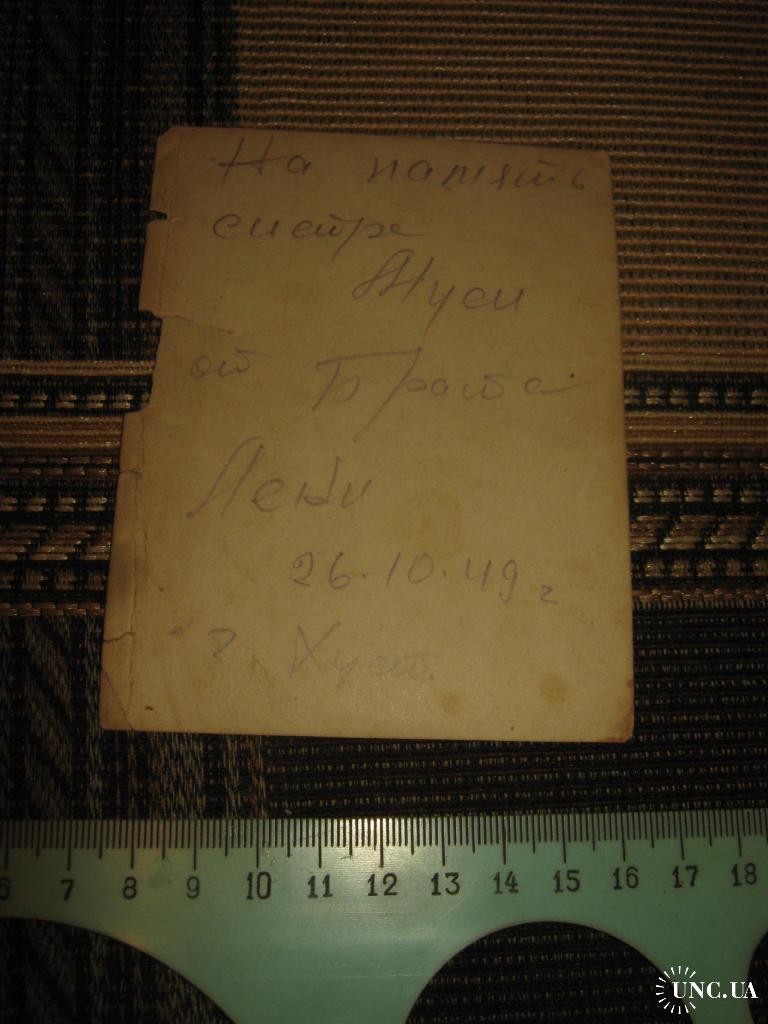 На память
систре
Муси
от Брата
Лени
26.10.49 г
г Хуст.
6 7 8 9 10 11 12 13 14 15 16 17 18
UNC.UA